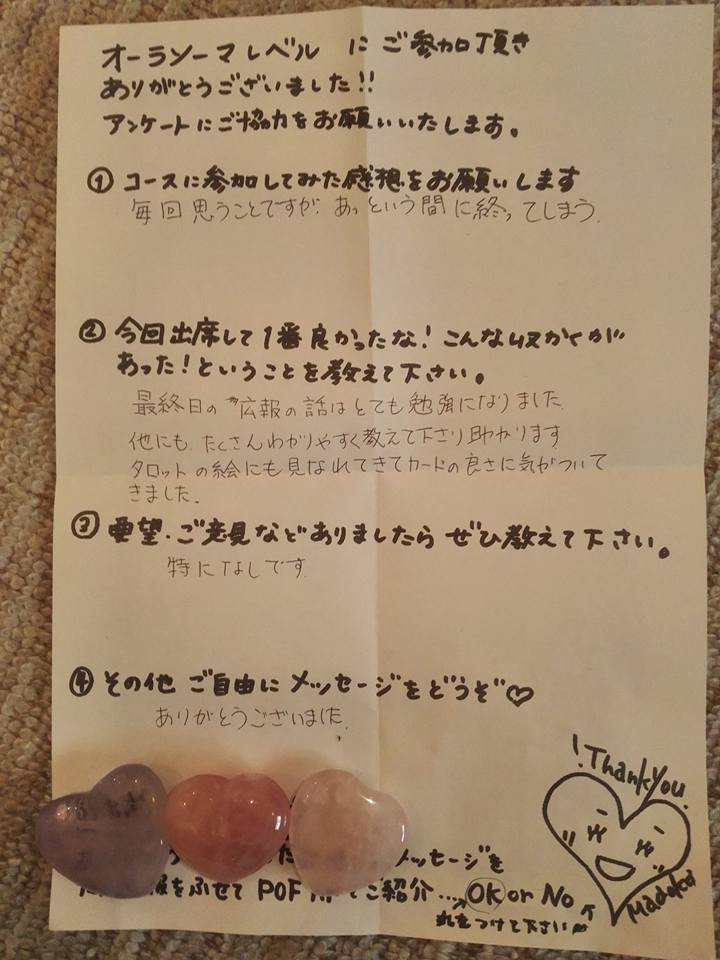 オーラソーマレベル にご参加頂き
ありがとうございました!!
アンケートにご協力をお願いいたします。
① コースに参加してみた感想をお願いします
毎回思うことですが、あっという間に終ってしまう。
② 今回出席して1番良かったな!こんな収かくが
あった!ということを教えて下さい。
最終日の"広報の話はとても勉強になりました。
他にも、たくさんわかりやすく教えて下さり助かります
タロットの絵にも見なれてきてカードの良さに気がついて
きました。
③ 要望・ご意見などありましたら ぜひ教えて下さい。
特になしです。
④ その他 ご自由に メッセージをどうぞ♡
ありがとうございました。
メッセージを
をふせて POF でご紹介...OK or No
丸をつけて下さい
!Thank you.
Madoka